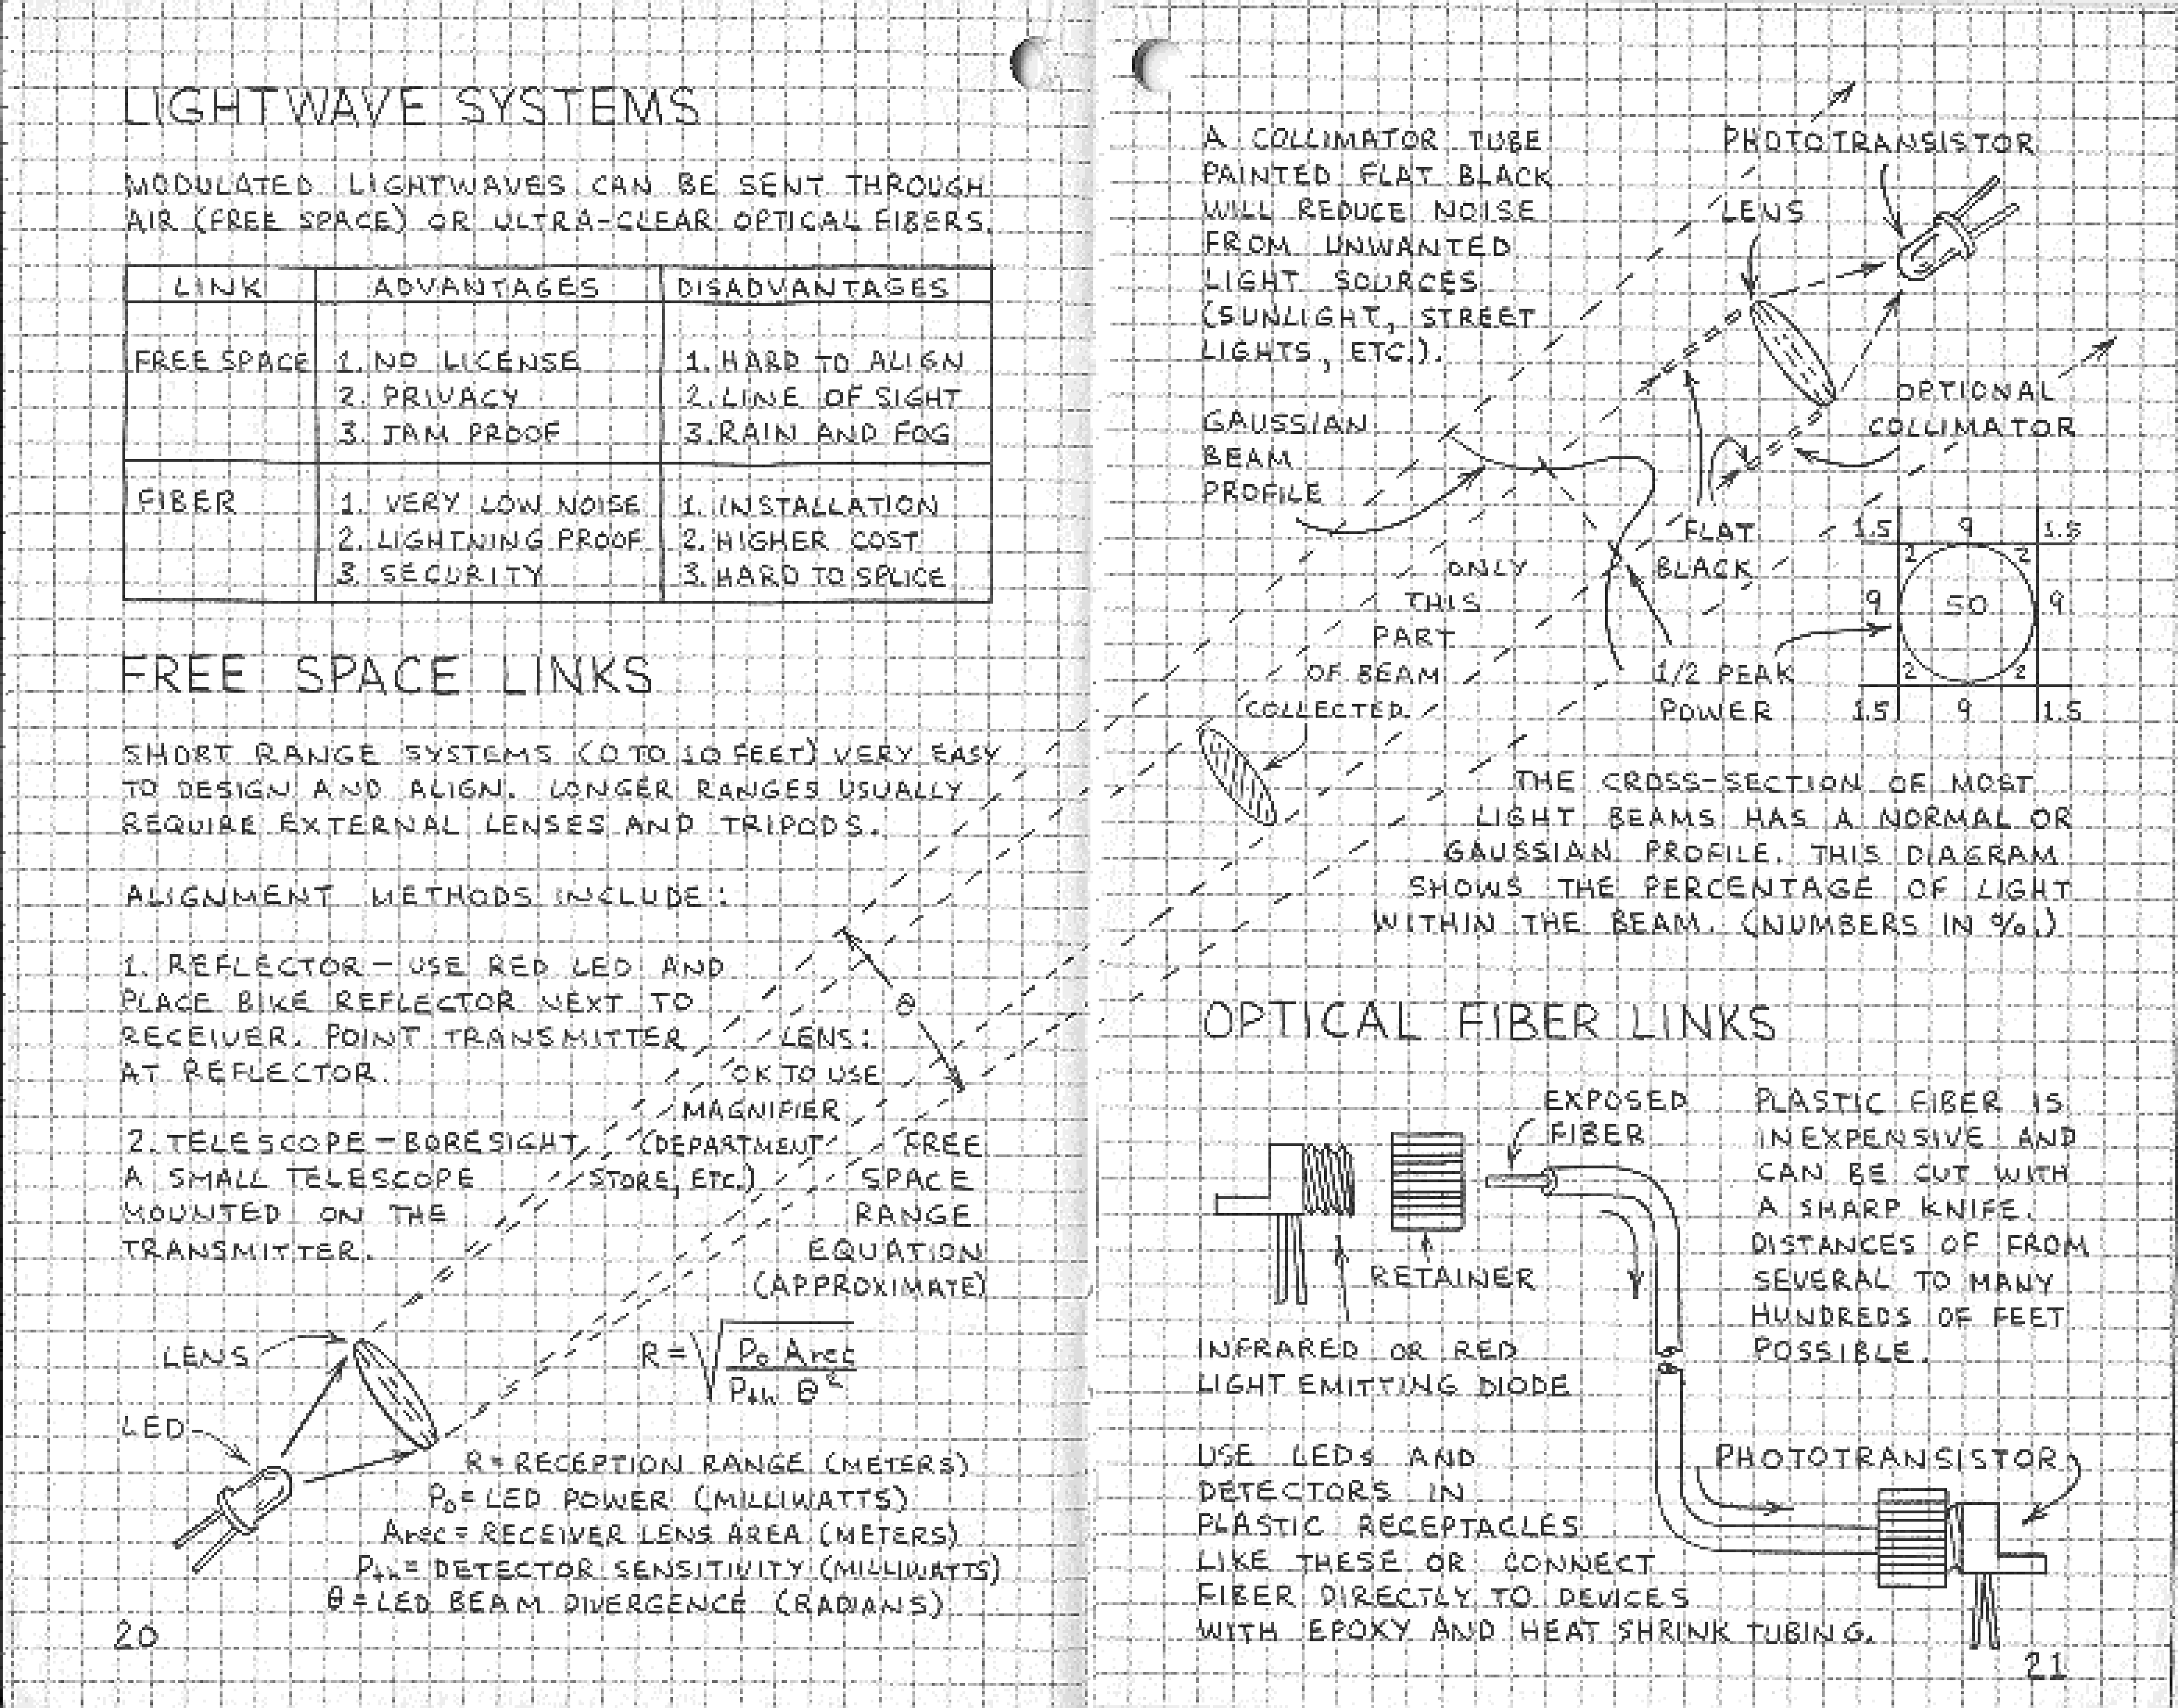 LIGHTWAVE SYSTEMS
MODULATED LIGHTWAVES CAN BE SENT THROUGH
AIR (FREE SPACE) OR ULTRA-CLEAR OPTICAL FIBERS.
LINK ADVANTAGES DISADVANTAGES
FREE SPACE 1. NO LICENSE 1. HARD TO ALIGN
2. PRIVACY 2. LINE OF SIGHT
3. JAM PROOF 3. RAIN AND FOG
FIBER 1. VERY LOW NOISE 1. INSTALLATION
2. LIGHTNING PROOF 2. HIGHER COST
3. SECURITY 3. HARD TO SPLICE
FREE SPACE LINKS
SHORT RANGE SYSTEMS (0 TO 10 FEET) VERY EASY
TO DESIGN AND ALIGN. LONGER RANGES USUALLY
REQUIRE EXTERNAL LENSES AND TRIPODS.
ALIGNMENT METHODS INCLUDE:
1. REFLECTOR – USE RED LED AND
PLACE BIKE REFLECTOR NEXT TO
RECEIVER. POINT TRANSMITTER
AT REFLECTOR.
2. TELESCOPE – BORESIGHT
A SMALL TELESCOPE
MOUNTED ON THE
TRANSMITTER.
θ
LENS:
OK TO USE
MAGNIFIER
(DEPARTMENT
STORE, ETC.)
FREE
SPACE
RANGE
EQUATION
(APPROXIMATE)
LENS
LED
R = √(Po Arec / Pth θ²)
R = RECEPTION RANGE (METERS)
Po = LED POWER (MILLIWATTS)
Arec = RECEIVER LENS AREA (METERS)
Pth = DETECTOR SENSITIVITY (MILLIWATTS)
θ = LED BEAM DIVERGENCE (RADIANS)
20
A COLLIMATOR TUBE
PAINTED FLAT BLACK
WILL REDUCE NOISE
FROM UNWANTED
LIGHT SOURCES
(SUNLIGHT, STREET
LIGHTS, ETC.).
PHOTOTRANSISTOR
LENS
OPTIONAL
COLLIMATOR
GAUSSIAN
BEAM
PROFILE
FLAT
BLACK
ONLY
THIS
PART
OF BEAM
COLLECTED
1/2 PEAK
POWER
1.5 9 1.5
2 2
9 50 9
2 2
1.5 9 1.5
THE CROSS-SECTION OF MOST
LIGHT BEAMS HAS A NORMAL OR
GAUSSIAN PROFILE. THIS DIAGRAM
SHOWS THE PERCENTAGE OF LIGHT
WITHIN THE BEAM. (NUMBERS IN %.)
OPTICAL FIBER LINKS
EXPOSED
FIBER
RETAINER
INFRARED OR RED
LIGHT EMITTING DIODE
PLASTIC FIBER IS
INEXPENSIVE AND
CAN BE CUT WITH
A SHARP KNIFE.
DISTANCES OF FROM
SEVERAL TO MANY
HUNDREDS OF FEET
POSSIBLE.
USE LEDs AND
DETECTORS IN
PLASTIC RECEPTACLES
LIKE THESE OR CONNECT
FIBER DIRECTLY TO DEVICES
WITH EPOXY AND HEAT SHRINK TUBING.
PHOTOTRANSISTOR
21